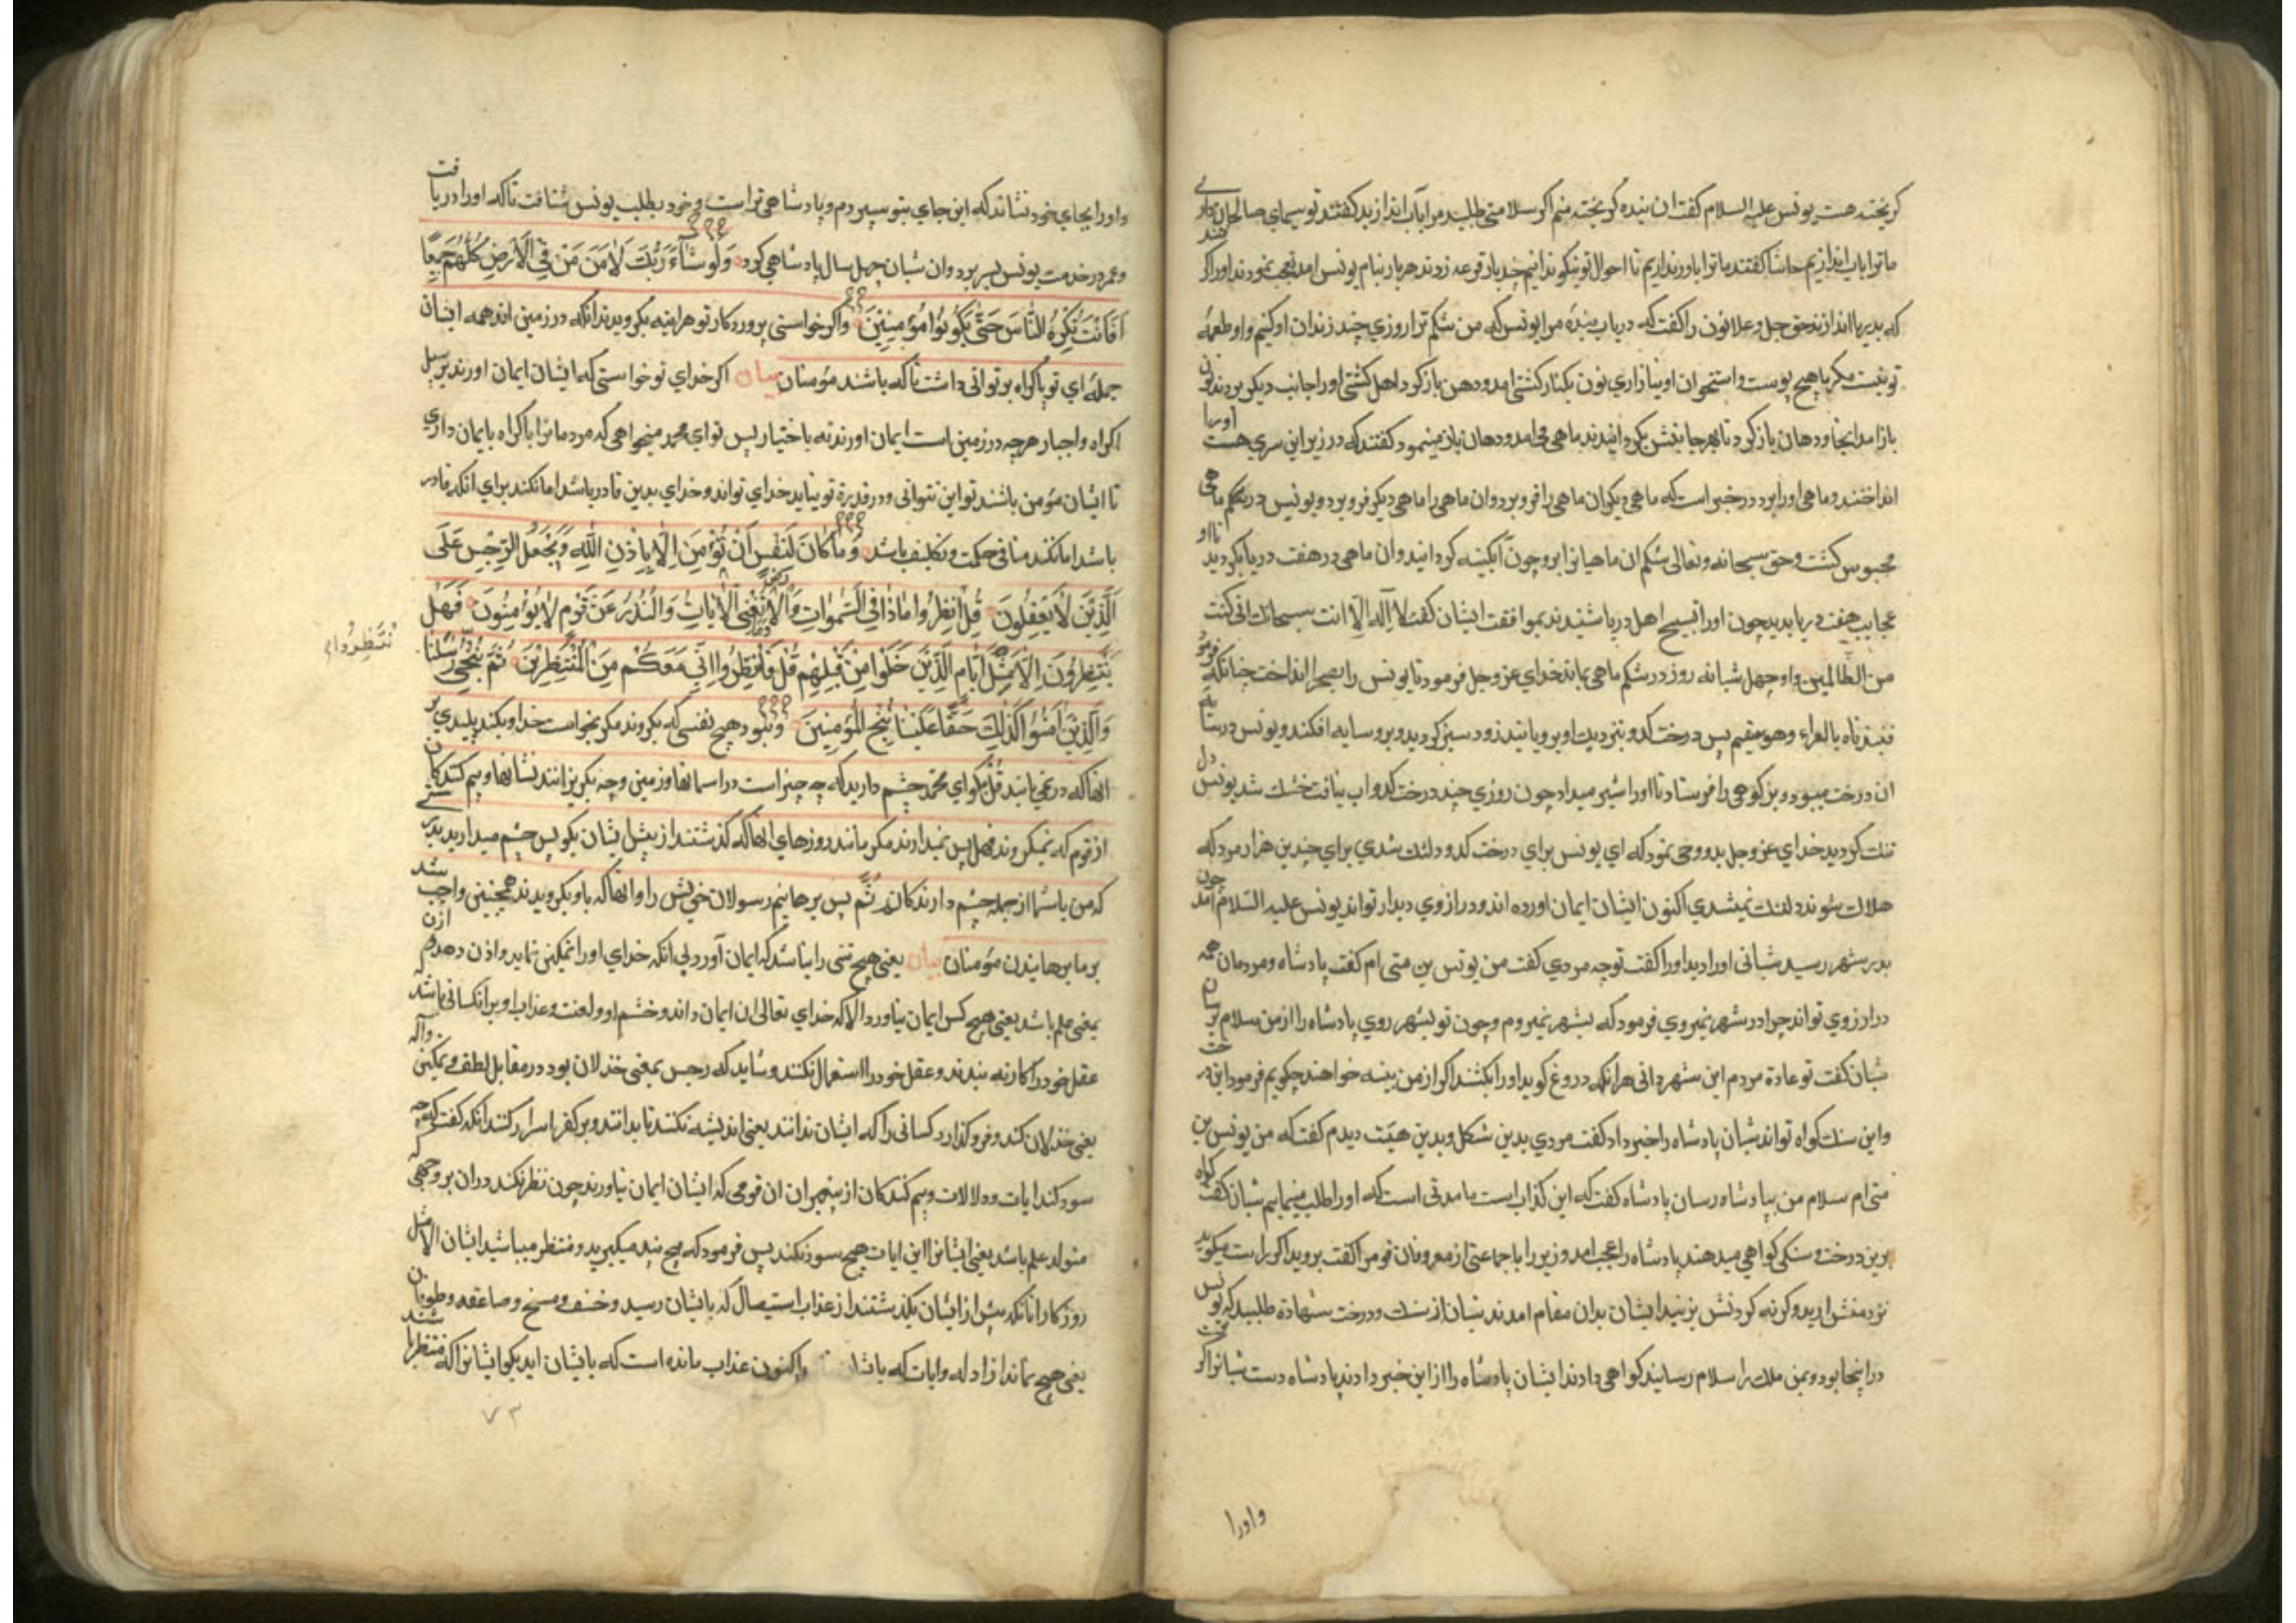 کریخته هست یونس علیه السلام کفت ان بنده کریخته منم اکر سلامتی طلبید مرا باب اندازید کفتند تو سیمای صالحان داری
ما ترا باب اندازیم حاشا کفتند ما ترا باور نداریم تا احوال تو نیکو ندانیم چند بار قوعه زدند هر بار بنام یونس امد تعجب نمودند اورا کر
که بدریا اندازند حق جل وعلا نون را کفت که دریاب بندهٔ مرا یونس که من شکم ترا روزی چند زندان او کنیم و او طعمهٔ
تو نیست مکر با هیچ پوست و استخوان او نیازاری نون بکنار کشتی امد و دهن باز کرد اهل کشتی اورا جانب دیکر بردند نون
باز امد انجا و دهان باز کرد تا بهر جانبش بکردانیدند ماهی می امد و دهان باز مینمود کفتند که در زیر این سری هست اورا
انداختند و ماهی اورا برد در خبر است که ماهی دیکر ان ماهی را فرو برد و ان ماهی را ماهی دیکر فرو برد و یونس در شکم ماهی
محبوس کشت و حق سبحانه و تعالی شکم ان ماهیانرا بروچون آبکینه کردانید و ان ماهی در هفت دریا بکردید تا او
عجایب هفت دریا بدید چون اورا تسبیح اهل دریا شنیدند بموافقت ایشان کفت لا اله الا انت سبحانك انی کنت
من الظالمین و او چهل شبانه روز در شکم ماهی بماند خدای عز وجل فرمود تا یونس را بصحرا انداخت چنانکه فرمود
فنبذناه بالعراء وهو سقیم پس درخت کدو بنزدیك او برویانید زود سبز کردید و برو سایه افکند و یونس در سایه
ان درخت میبود و بز کوهی را فرستاد تا اورا شیر میداد چون روزی چند درخت کدو اب نیافت خشك شد یونس دل
تنك کردید خدای عز وجل بدو وحی نمود که ای یونس برای درخت کدو دلتنك شدی برای چندین هزار مرد که
هلاك شوند دلتنك نمیشدی اکنون ایشان ایمان اورده اند و در ارزوی دیدار تواند یونس علیه السلام چون امد
بدر شهر رسید شبانی اورا دید اورا کفت تو چه مردی کفت من یونس بن متی ام کفت پادشاه و مردمان همه
در ارزوی تواند چرا در شهر نمیروی فرمود که بشهر نمیروم و چون تو بشهر روی پادشاه را از من سلام برسان
شبان کفت تو عادة مردم این شهر دانی هرانکه دروغ کوید اورا بکشند اکر از من بینه خواهند چکویم فرمود این درخت
و این سنك کواه تواند شبان پادشاه را خبر داد کفت مردی بدین شکل و بدین هیئت دیدم کفت که من یونس بن
متی ام سلام من بپادشاه رسان پادشاه کفت که این کذاب است ما مدتی است که اورا طلب مینماییم شبان کفت کواه
برین درخت و سنکی کواهی میدهند پادشاه را عجب امد وزیر را با جماعتی از معروفان قوم را کفت بروید اکر راست میکوید
نزد منش ارید و کرنه کردنش بزنید ایشان بدان مقام امدند شبان از سنك و درخت شهادة طلبید که یونس
در اینجا بود و بمن ملك را سلام رسانید کواهی دادند ایشان پادشاه را از این خبر دادند پادشاه دست شبانرا کرفت
واورا
و اورا بجای خود نشاند که این جای بتو سپردم و پادشاهی تراست و خود بطلب یونس شتافت تا که اورا دریافت
و عمر در خدمت یونس بسر برد و ان شبان چهل سال پادشاهی کرد وَلَوْ شَآءَ رَبُّكَ لَاٰمَنَ مَنْ فِي الْاَرْضِ كُلُّهُمْ جَمِيعًا
اَفَاَنْتَ تُكْرِهُ النَّاسَ حَتّٰى يَكُونُوا مُؤْمِنِينَ واکر خواستی پروردکار تو هراینه بکرویدند انکه در زمین اند همه ایشان
جمله ای تو باکراه بر توانی داشت تا که باشند مؤمنان بیان اکر خدای تو خواستی که ایشان ایمان اورند بر سبیل
اکراه و اجبار هرچه در زمین است ایمان اورند نه باختیار پس تو ای محمد میخواهی که مردمانرا باکراه بایمان داری
تا ایشان مؤمن باشند تو این نتوانی و در قدرة تو نیاید خدای تواند و خدای بدین قادر باشد اما نکند برای انکه قادر
باشد اما نکند منافی حکمت و تکلیف باشد وَمَا كَانَ لِنَفْسٍ اَنْ تُؤْمِنَ اِلَّا بِاِذْنِ اللّٰهِ وَيَجْعَلُ الرِّجْسَ عَلَى
الَّذِينَ لَا يَعْقِلُونَ قُلِ انْظُرُوا مَاذَا فِي السَّمٰوَاتِ وَالْاَرْضِ وَمَا تُغْنِي الْاٰيَاتُ وَالنُّذُرُ عَنْ قَوْمٍ لَا يُؤْمِنُونَ فَهَلْ
يَنْتَظِرُونَ اِلَّا مِثْلَ اَيَّامِ الَّذِينَ خَلَوْا مِنْ قَبْلِهِمْ قُلْ فَانْتَظِرُوا اِنِّي مَعَكُمْ مِنَ الْمُنْتَظِرِينَ ثُمَّ نُنَجِّي رُسُلَنَا
وَالَّذِينَ اٰمَنُوا كَذٰلِكَ حَقًّا عَلَيْنَا نُنْجِ الْمُؤْمِنِينَ و نبود هیچ نفسی که بکروند مکر بخواست خدا و بکند پلیدی بر
انها که در نمی یابند قُل بکو ای محمد چشم دارید که چه چیز است در اسمانها و زمین و چه بکریزانند نشانها و بیم کنندکان
از قوم که نمیکروند فهل پس نمیدارند مکر مانند روزهای انها که کذشتند از پیش ایشان بکو پس چشم میدارید بدرستی
که من باشما از جمله چشم دارندکان ثُمَّ پس برهانیم رسولان خویش را و انها که باو بکرویدند همچنین واجب شد
بر ما برهانیدن مؤمنان بیان یعنی هیچ تنی را نباشد که ایمان آورد الی انکه خدای اورا تمکین نماید و اذن دهد
بمعنی علم باشد یعنی هیچ کس ایمان نیاورد الا که خدای تعالی ان ایمان داند و خشم او و لعنت و عذاب او بر انکسانی باشد که
عقل خود را کار نه بندند و عقل خود را استعمال نکنند و شاید که رجس بمعنی خذلان بود در مقابل لطف و تمکین
یعنی خذلان کند و فرو کذارد کسانی را که ایشان ندانند یعنی اندیشه نکنند تا بدانند و بر کفر اسرار کنند انکه کفت که چه
سود کند ایات و دلالات و بیم کنندکان از پیغمبران ان قومی که ایشان ایمان نیاورند چون نظر نکند در ان بر وجهی که
متولد علم باشد یعنی ایشانرا این ایات هیچ سود نکند پس فرمود که هیچ پند میکیرید و منتظر میباشید ایشان الا مثل
روزکار انانکه پیش از ایشان بکذشتند از عذاب استیصال که بایشان رسید و خسف و مسخ و صاعقه و طوفان
یعنی هیچ نماند از ادله و ایات که باشا واکنون عذاب مانده است که بایشان اید بکو ایشانرا که منتظر باشند
٧٣